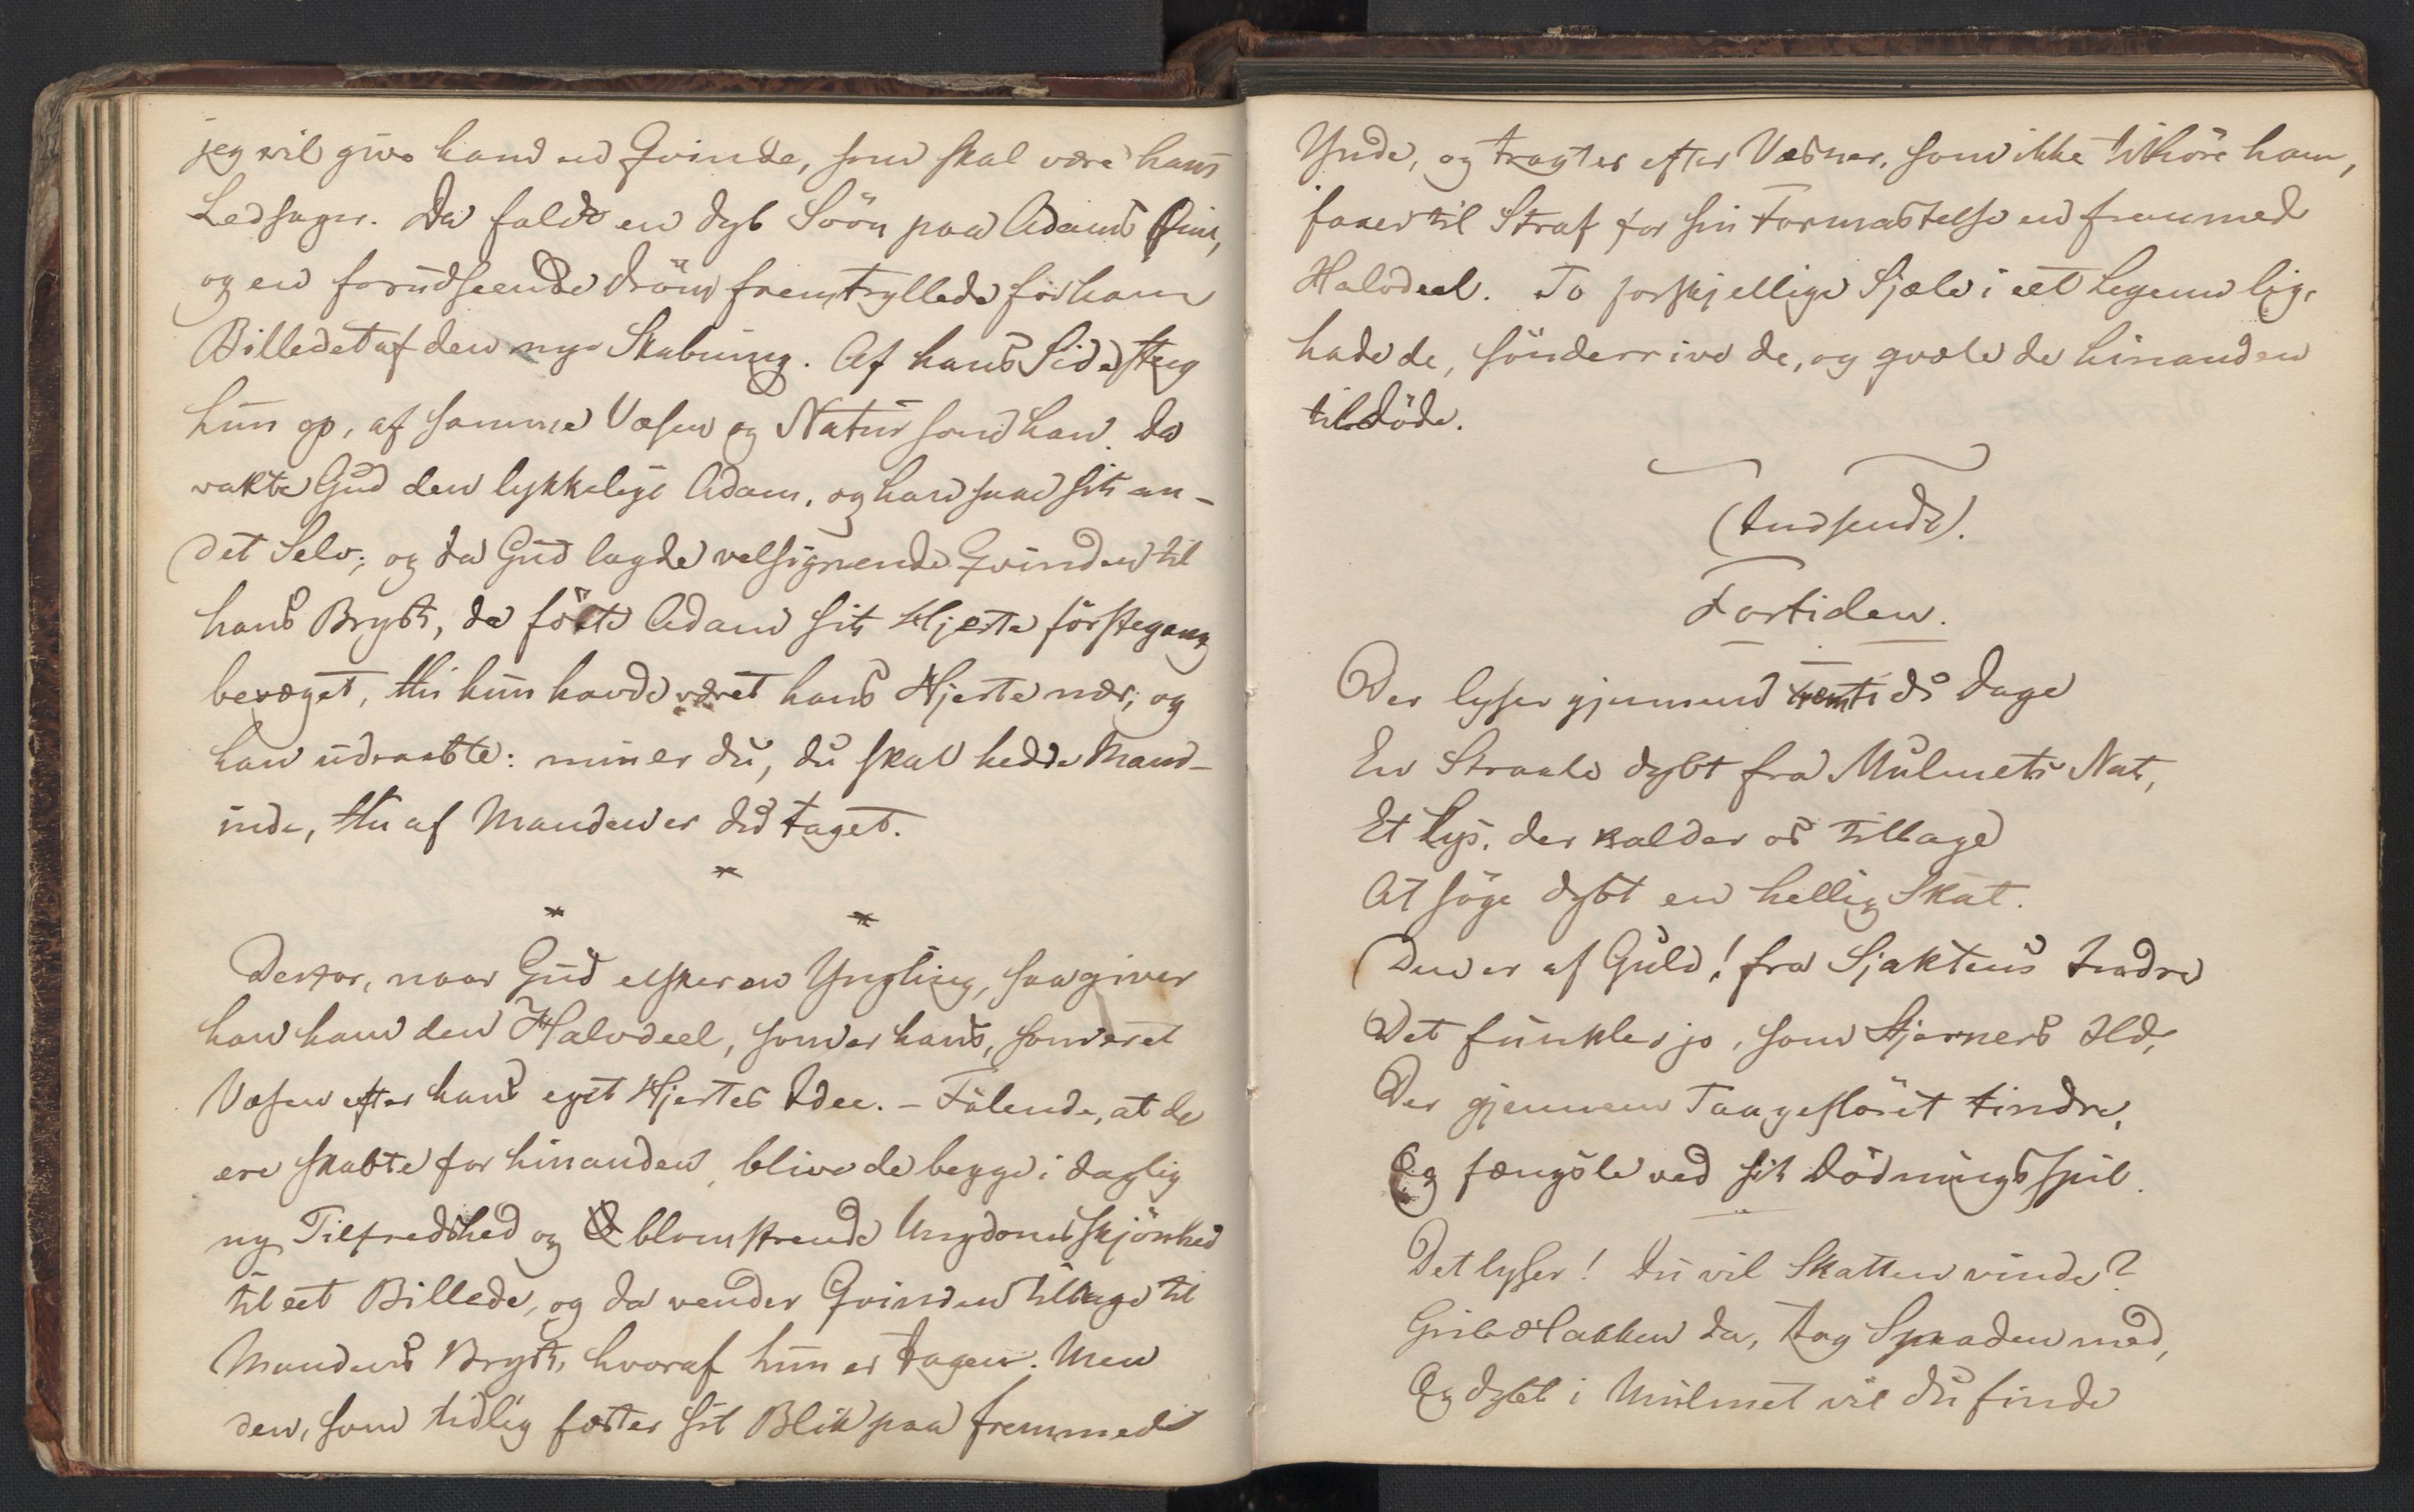 jeg vil give ham en Qvinde, som skal være hans
Ledsager. Da faldt en dyb Sövn paa Adams Öine,
og en forudseende Dröm fremtryllede for ham
Billedet af den nye Skabning. Af hans Side steg
hun op, af samme Væsen og Natur som han. Da
vakte Gud den lykkelige Adam, og han saae sit an-
det Selv; og da Gud lagde velsignende Qvinden til
hans Bryst, da fölte Adam sit Hjerte förstegang
bevæget, thi hun havde været hans Hjerte nær; og
han udraabte: min er du, du skal hedde Mand-
inde, thi af Manden er du taget.
*
* *
Derfor, naar Gud elsker en Yngling, saa giver
han ham den Halvdeel, som er hans, som er et
Væsen efter hans eget Hjertes Idee. - Fölende, at de
ere skabte for hinanden, blive de begge i daglig
ny Tilfredshed og blomstrende Ungdomsskjönhed
til eet Billede, og da vender Qvinden tilbage til
Mandens Bryst, hvoraf hun er tagen. Men
den, som tidlig fæster sit Blik paa fremmed
Ynde, og tragter efter Væsner, som ikke tilhöre ham,
faaer til Straf for sin Formastelse en fremmed
Halvdeel. To forskjellige Sjæle i eet Legeme lig,
hade de, sönderrive de, og qvæle de hinanden
tildöde.
(Indsendt).
Fortiden.
Der lyser gjennem Fremtids Dage
En Straale dybt fra Mulmets Nat,
Et Lys, der kalder os tilbage
At söge dybt en hellig Skat.
Den er af Guld! fra Sjaktens Indre
Det funkler jo, som Stjerners Ild,
Der gjennem Taageslöret tindre,
Og fængsle ved sit Dödningsspil.
Det lyser! Du vil Skatten vinde?
Grib Hakken da, tag Spaden med,
Og dybt i Mulmet vil du finde